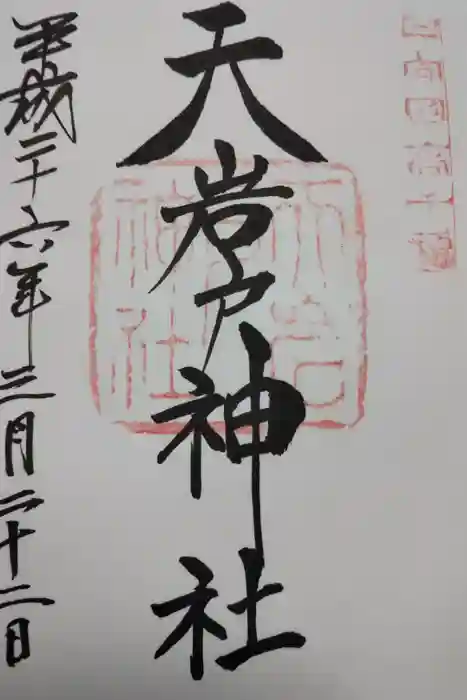 日向国高千穂
天岩戸神社
天岩戸神社
平成二十六年三月二十二日